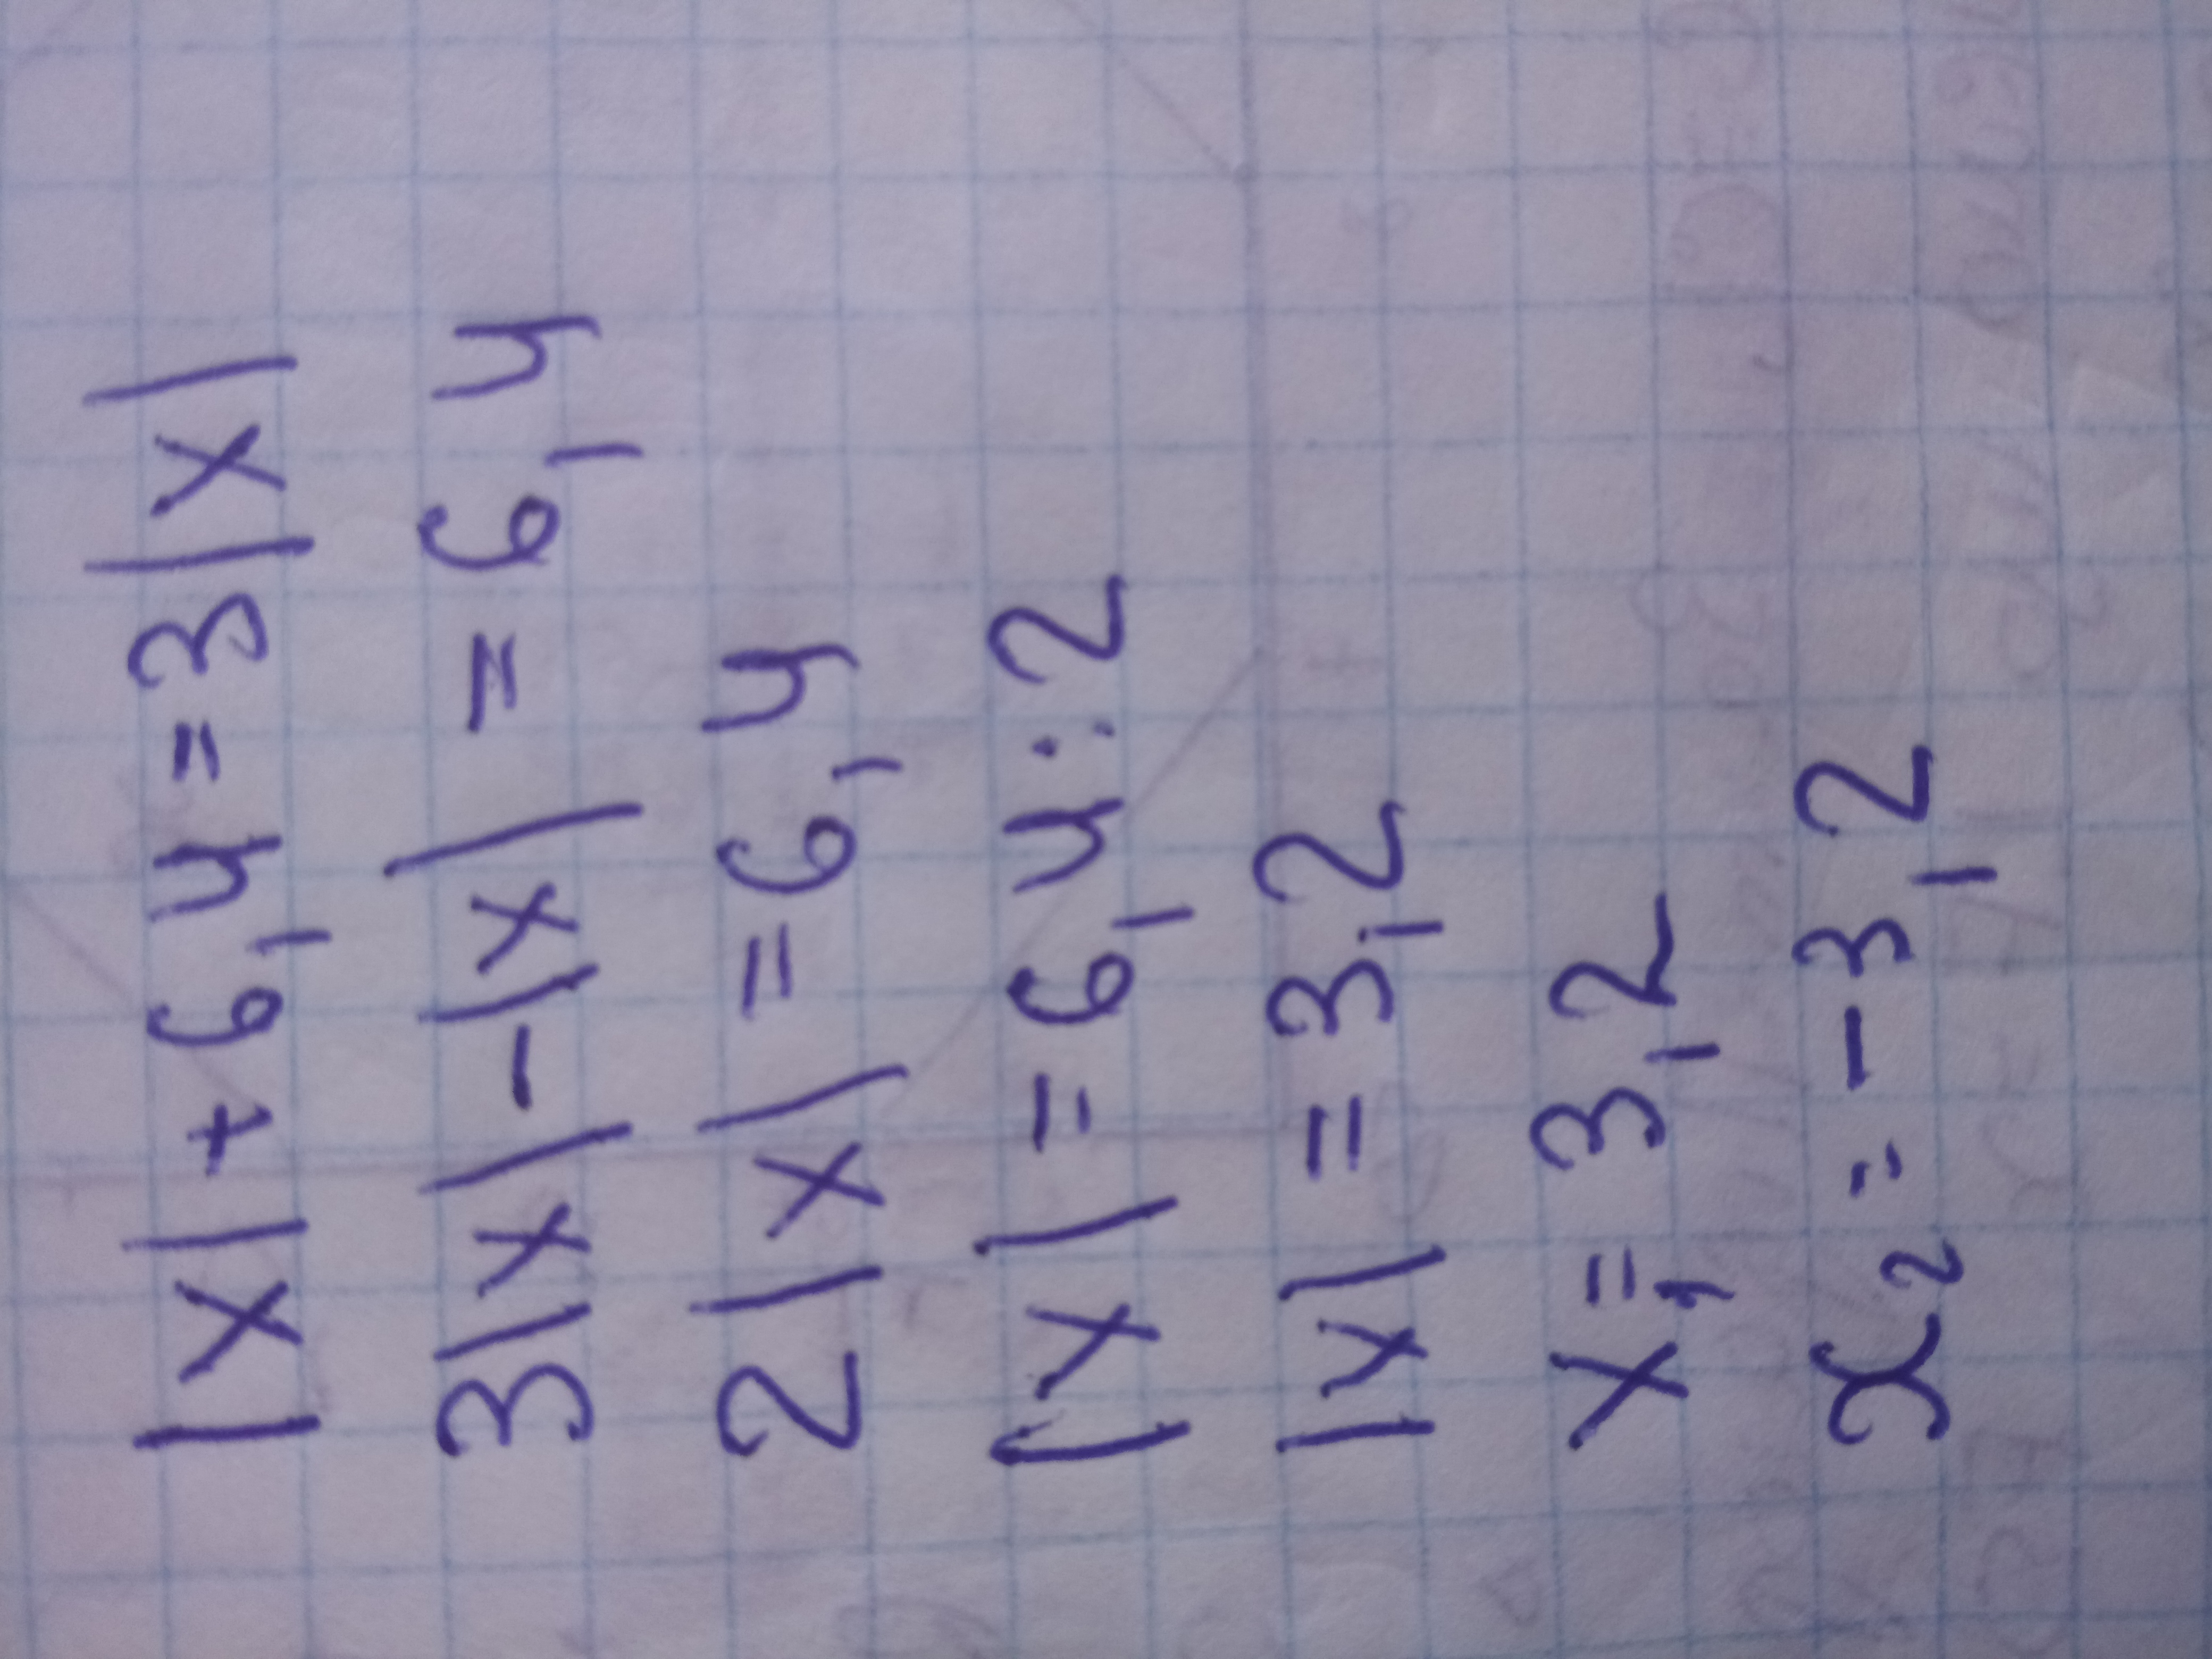 |x| + 6,4 = 3|x|
3|x| - |x| = 6,4
2|x| = 6,4
|x| = 6,4 : 2
|x| = 3,2
x₁ = 3,2
x₂ = -3,2